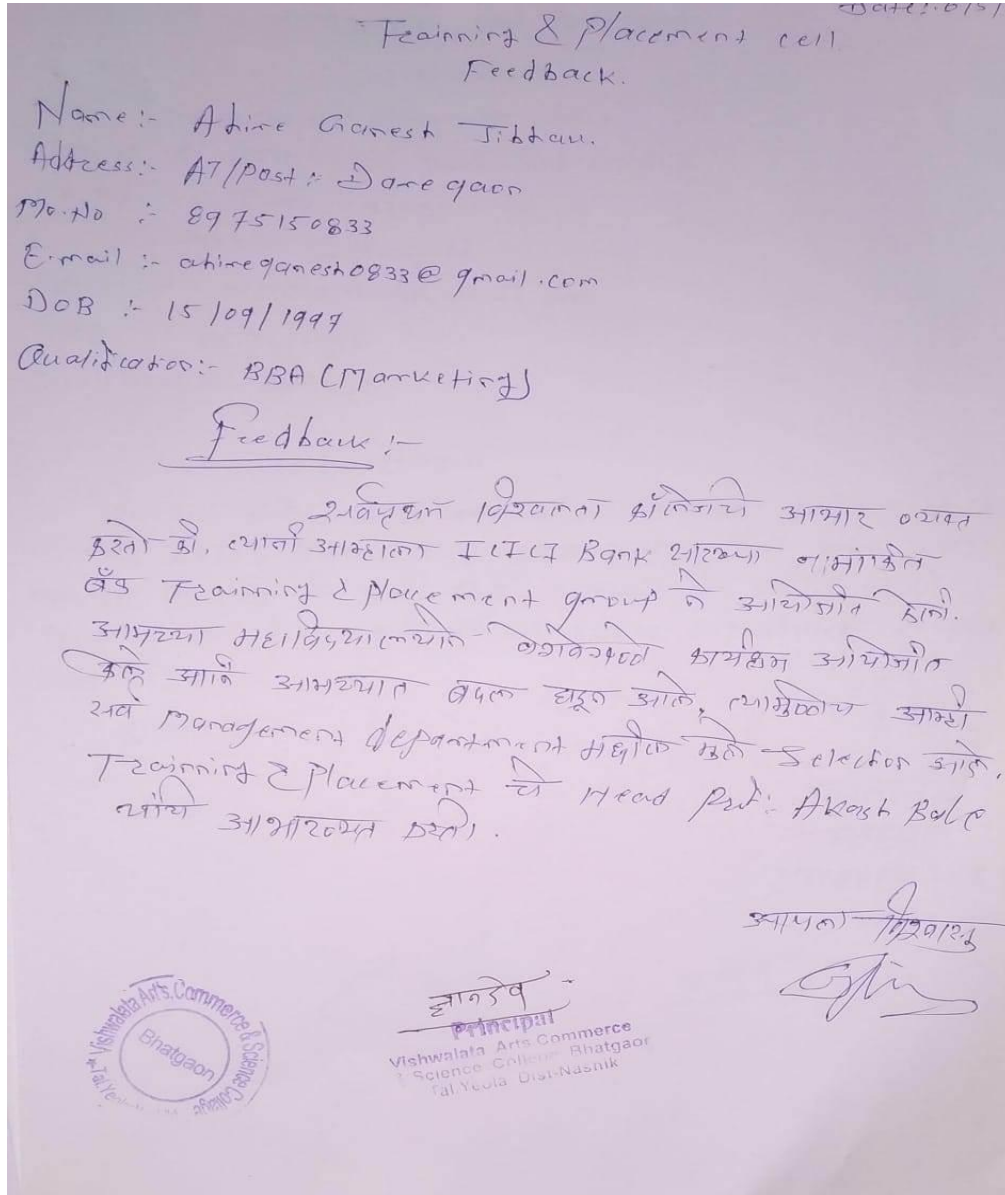 Date:- 6/5/
Trainning & Placement cell
Feedback.
Name:- Ahire Ganesh Jibhau.
Address:- AT/Post: Daregaon
Mo.No :- 8975150833
E-mail :- ahireganesh0833@gmail.com
DOB :- 15/09/1997
Qualification:- BBA (Marketing)
Feedback :-
सर्वप्रथम विश्वलता कॉलेजचे आभार व्यक्त
करतो की, त्यांनी आम्हाला ICICI Bank सारख्या नामांकीत
बँक Trainning & Placement group ने आयोजीत केली.
आमच्या महाविद्यालयाने वेगवेगळे कार्यक्रम आयोजीत
केले आणि आमच्यात बदल घडून आले, त्यामुळेच आम्ही
सर्व Management department मधील मुले Selection झाले.
Trainning & Placement चे Head Prof:- Akash Bale
यांचे आभारव्यक्त करतो.
आपला विश्वासु
Vishwalata Art's. Commerce & Science College
Bhatgaon
Tal. Yeola
ज्ञानदेव
Principal
Vishwalata Arts Commerce
& Science College Bhatgaon
Tal. Yeola Dist-Nashik